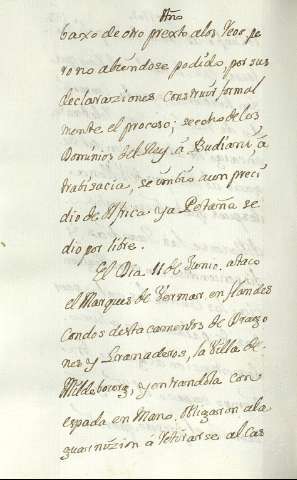 Año
baxo de otro prexto alos Reos, pe
ro no abiéndose podido, por sus
declaraziones construir formal
mente el proceso; se echo de los
Dominios del Rey, á Budiani, á
trabisacia, se imbio a un preci
dio de Africa y a Potama se
dio por libre.
El Dia 11 de Junio, ataco
el Marques de Vermar en flandes
condos destacamentos de Drago
nes y Granaderos, la Villa de
Mildebourg, y entrandola con
espada en Mano, obligaron ala
guarnizion á retirarse al Cas